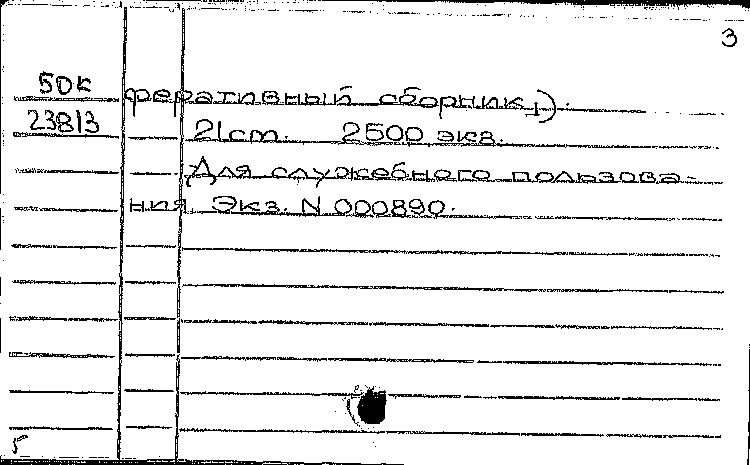 3
50к феративный сборник,1).
23813 21cm. 2500 экз.
Для служебного пользова-
ния. Экз. N 000890.
5